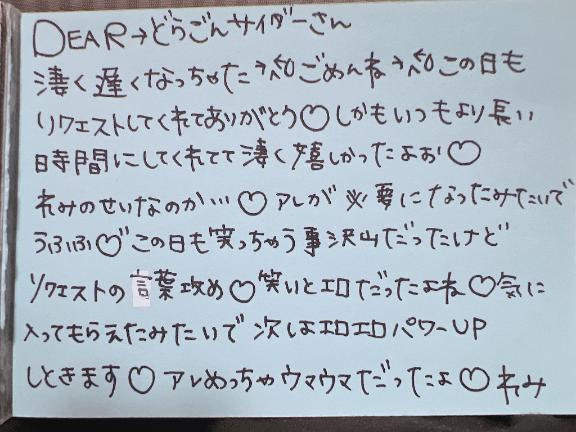 DEAR→どらごんサイダーさん
凄く遅くなっちゃた ごめんね この日も
リクエストしてくれてありがとう♡しかもいつもより長い
時間にしてくれてて凄く嬉しかったよぉ♡
れみのせいなのか…♡アレが必要になったみたいで
うふふ♡この日も笑っちゃう事沢山だったけど
リクエストの言葉攻め♡笑いとエロだったよね♡気に
入ってもらえたみたいで次しはエロエロパワーUP
しときます♡アレめっちゃウマウマだったよ♡れみ